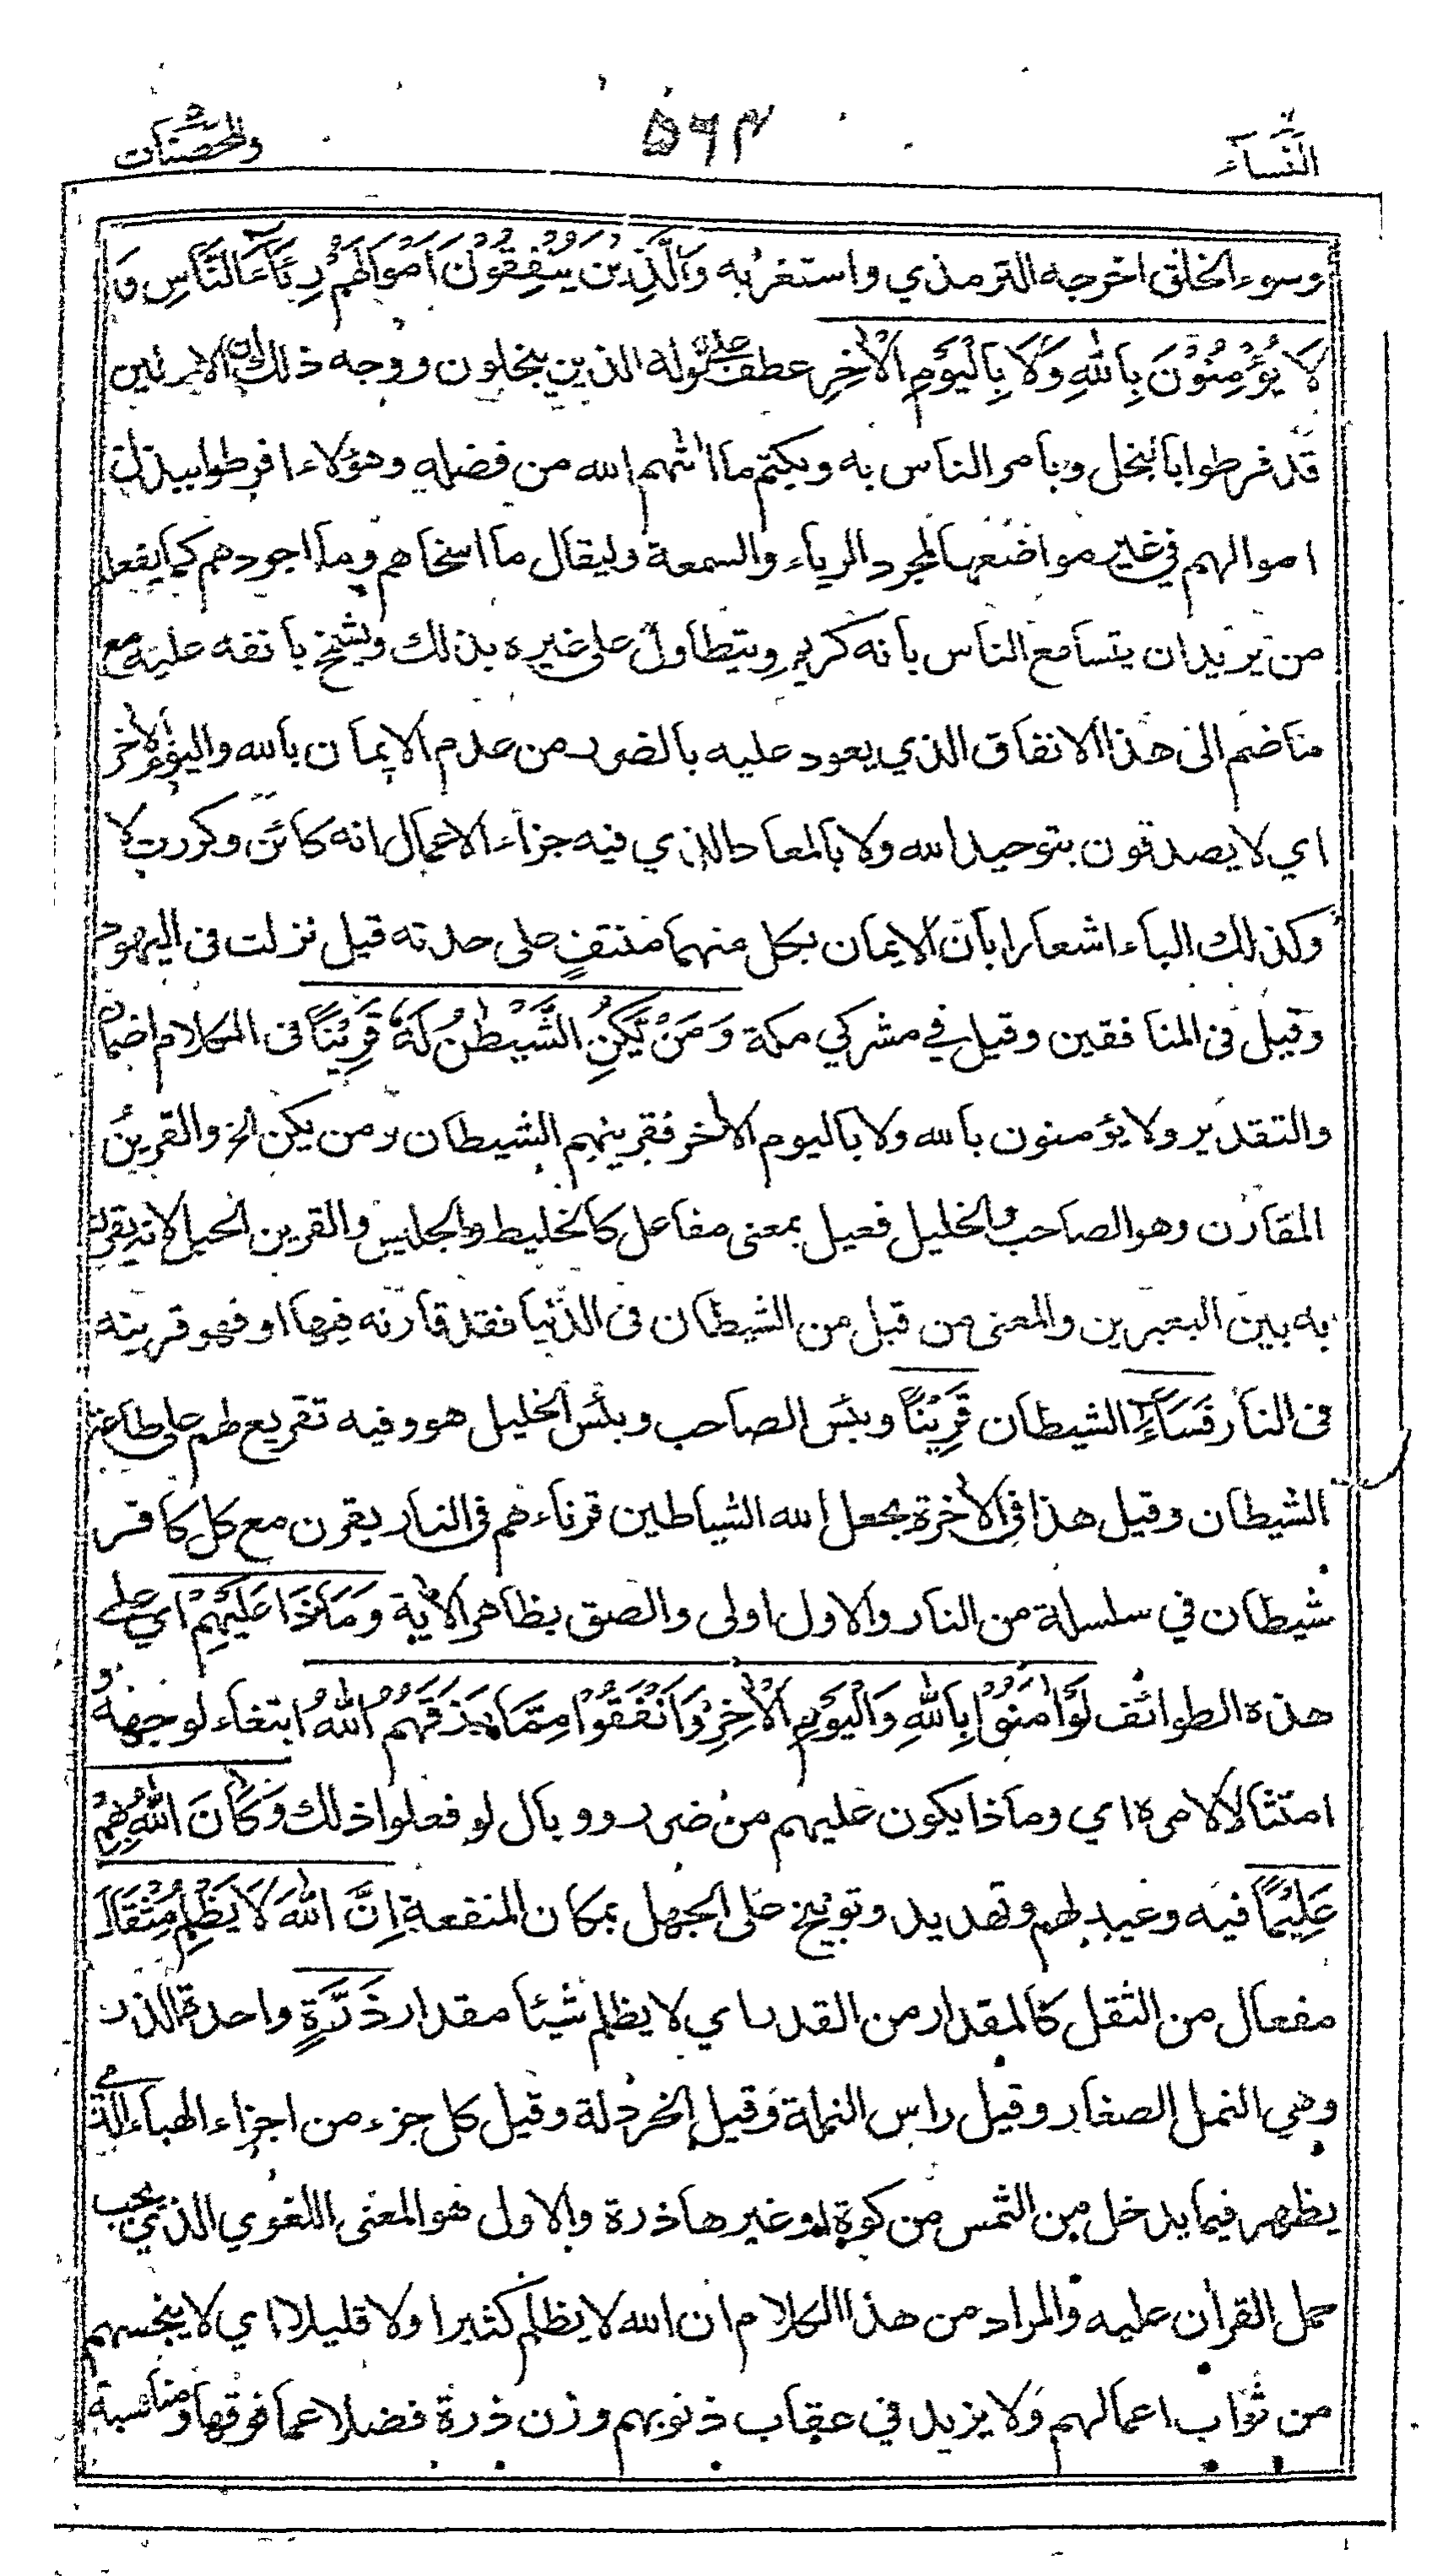 النساء
٥٦٣
والمحصنات
وسوء الخلق اخرجه الترمذي واستغربه وَالَّذِينَ يُنْفِقُوْنَ اَمْوَالَهُمْ رِئَآءَ النَّاسِ وَ
لَا يُؤْمِنُوْنَ بِاللهِ وَلَا بِالْيَوْمِ الْاٰخِرِ عطف على قوله الذين يبخلون ووجه ذلك ان الاولين
قد فرطوا بالبخل وبامر الناس به وبكتم ما اٰتٰهم الله من فضله وهؤلاء افرطوا ببذل
اموالهم في غير مواضعها لمجرد الرياء والسمعة وليقال ما اسخاهم وما اجودهم كما يفعله
من يريد ان يتسامع الناس بانه كريم ويتطاول على غيره بذلك ويشمخ بانفه عليه مع
ما ضم الى هذا الانفاق الذي يعود عليه بالضرر من عدم الايمان بالله واليوم الاٰخر
اي لا يصدقون بتوحيد الله ولا بالمعاد الذي فيه جزاء الاعمال انه كائن وكررت لا
وكذلك الباء اشعارا بان الايمان بكل منهما منتفٍ على حدته قيل نزلت فى اليهود
وقيل فى المنافقين وقيل في مشركي مكة وَمَنْ يَّكُنِ الشَّيْطٰنُ لَهٗ قَرِيْنًا فى الكلام اضمار
والتقدير ولا يؤمنون بالله ولا باليوم الاٰخر فقرينهم الشيطان ومن يكن الخ والقرين
المقارن وهو الصاحب والخليل فعيل بمعنى مفاعل كالخليط والجليس والقرين الحبل لانه يقرن
به بين البعيرين والمعنى من قبل من الشيطان فى الدنيا فقد قارنه فيها او فهو قرينه
فى النار فَسَآءَ الشيطان قَرِيْنًا وبئس الصاحب وبئس الخليل هو وفيه تقريع لهم على طاعة
الشيطان وقيل هذا فى الاٰخرة يجعل الله الشياطين قرناءهم فى النار يقرن مع كل كافر
شيطان في سلسلة من النار والاول اولى والصق بظاهر الاٰية وَمَاذَا عَلَيْهِمْ اي على
هذه الطوائف لَوْ اٰمَنُوْا بِاللهِ وَالْيَوْمِ الْاٰخِرِ وَاَنْفَقُوْا مِمَّا رَزَقَهُمُ اللهُ ابتغاء لوجهه و
امتثالا لامره اي وماذا يكون عليهم من ضرر ووبال لو فعلوا ذلك وَكَانَ اللهُ بِهِمْ
عَلِيْمًا فيه وعيد لهم وتهديد وتوبيخ على الجهل بمكان المنفعة اِنَّ اللهَ لَا يَظْلِمُ مِثْقَالَ
مفعال من الثقل كالمقدار من القدر اي لا يظلم شيئا مقدار ذَرَّةٍ واحدة الذر
وهي النمل الصغار وقيل راس النملة وقيل الخردلة وقيل كل جزء من اجزاء الهباء الذي
يظهر فيما يدخل من الشمس من كوة او غيرها ذرة والاول هو المعنى اللغوي الذي يجب
حمل القران عليه والمراد من هذا الكلام ان الله لا يظلم كثيرا ولا قليلا اي لا يبخسهم
من ثواب اعمالهم ولا يزيد في عقاب ذنوبهم وزن ذرة فضلا عما فوقها ومناسبة